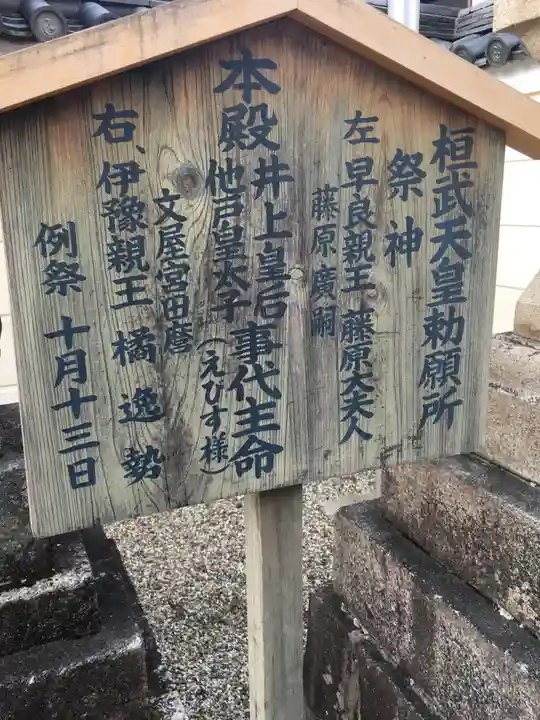 桓武天皇勅願所
祭神
左 早良親王、藤原大夫人
藤原廣嗣
本殿 井上皇后 事代主命
他戸皇太子 (えびす様)
文屋宮田麿
右、伊豫親王 橘逸勢
例祭 十月十三日